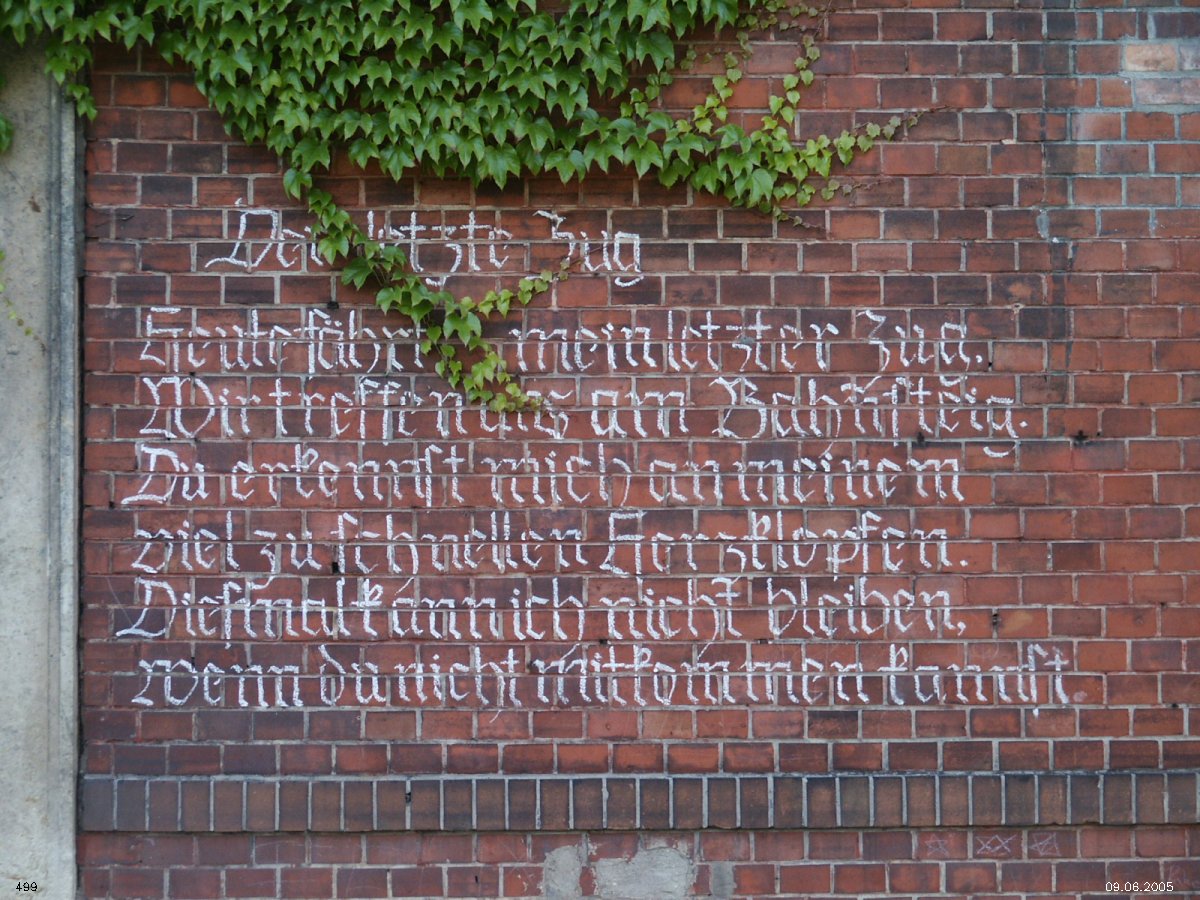 Der letzte Zug
Heute fährt mein letzter Zug.
Wir treffen uns am Bahnſteig.
Du erkennſt mich an meinem
viel zu ſchnellen Herzklopfen.
Dieſmal kann ich nicht bleiben,
wenn du nicht mitkommen kannſt.
499
09.06.2005